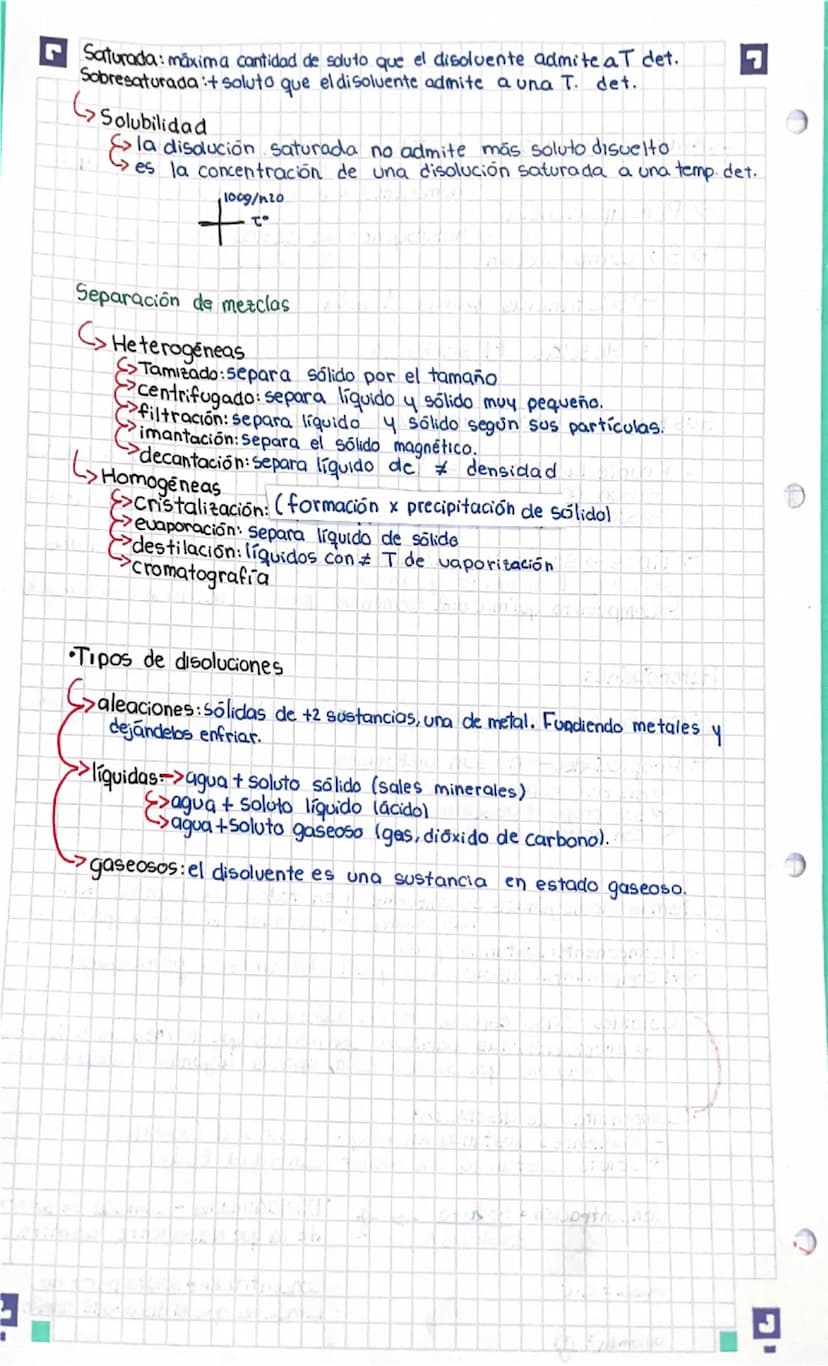 Saturada: máxima cantidad de soluto que el disolvente admite a T det.
Sobresaturada: + soluto que el disolvente admite a una T. det.
↳ Solubilidad
↳ la disolución saturada no admite más soluto disuelto
↳ es la concentración de una disolución saturada a una temp. det.
100g/h20
T°
Separación de mezclas
↳ Heterogéneas
↳ Tamizado: separa sólido por el tamaño
↳ centrifugado: separa líquido y sólido muy pequeño.
↳ filtración: separa líquido y sólido según sus partículas.
↳ imantación: separa el sólido magnético.
↳ decantación: separa líquido de ≠ densidad
↳ Homogéneas
↳ cristalización: (formación x precipitación de sólido)
↳ evaporación: separa líquido de sólido
↳ destilación: líquidos con ≠ T de vaporización
↳ cromatografía
•Tipos de disoluciones
↳ aleaciones: sólidas de +2 sustancias, una de metal. Fundiendo metales y
dejándelos enfriar.
↳ líquidas: -> agua + soluto sólido (sales minerales)
↳ agua + soluto líquido (ácido)
↳ agua + soluto gaseoso (gas, dióxido de carbono).
↳ gaseosos: el disolvente es una sustancia en estado gaseoso.